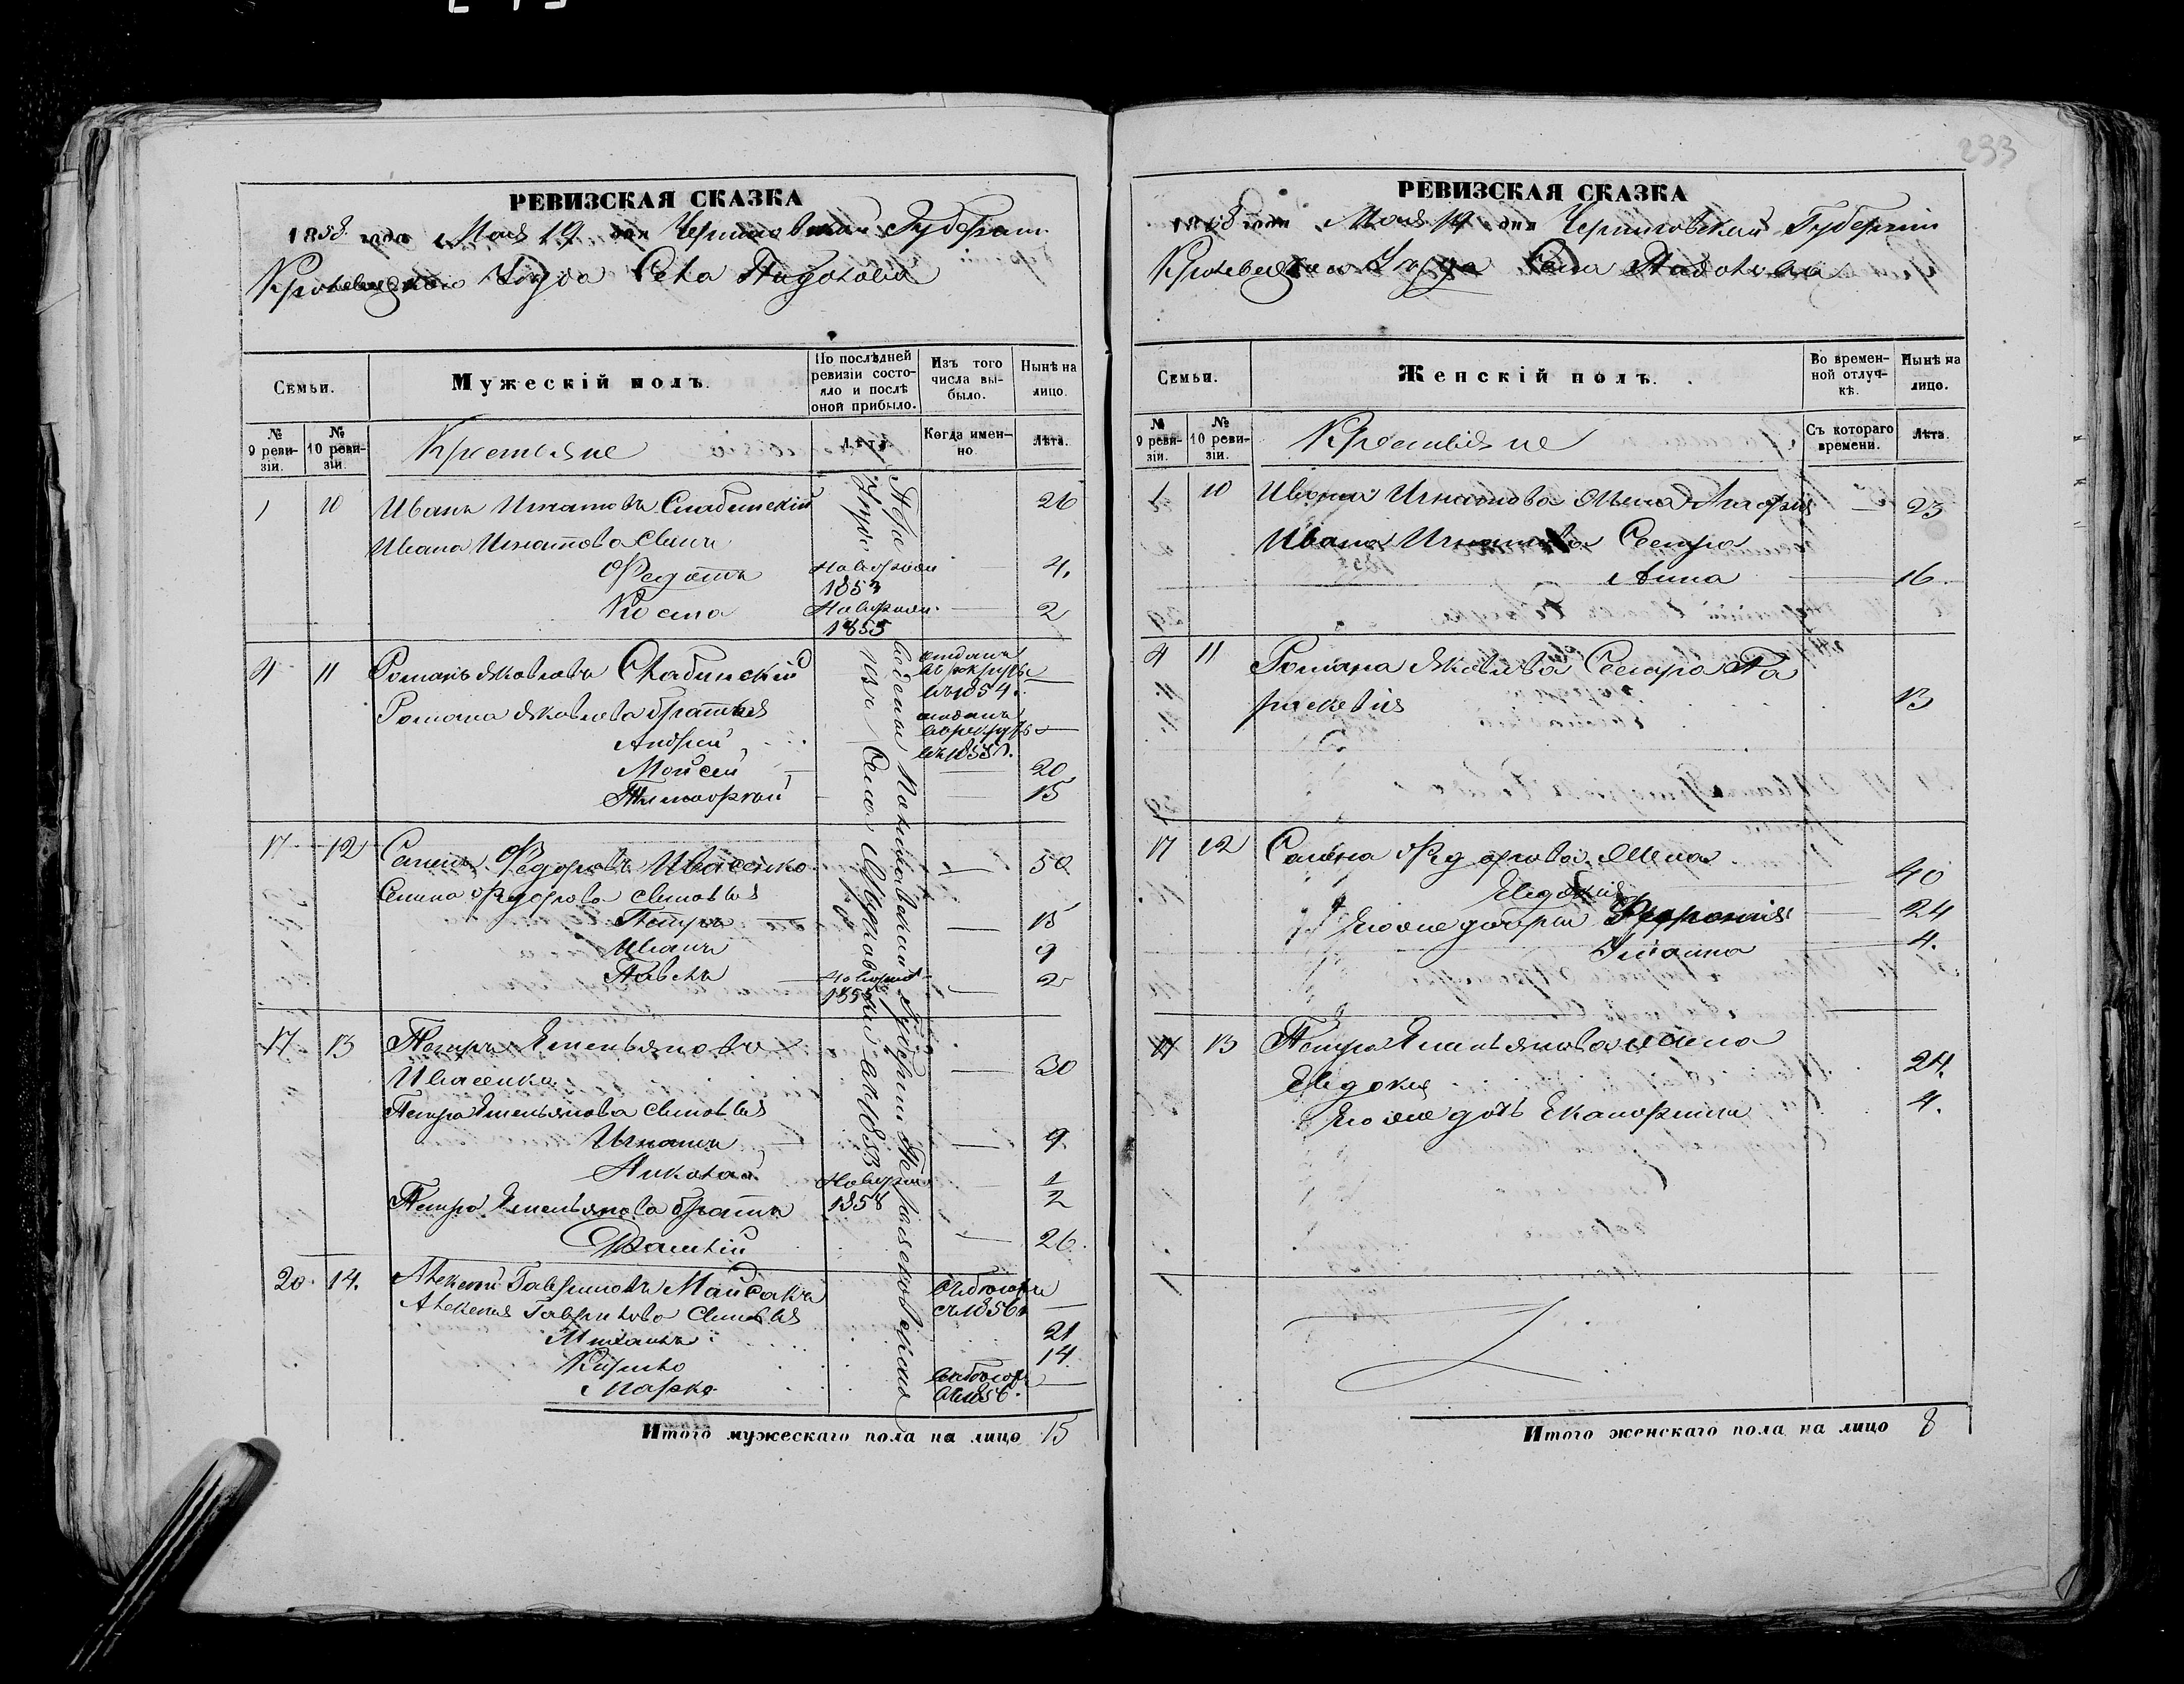 233
РЕВИЗСКАЯ СКАЗКА
1858 года Мая 19 дня Черниговской Губерніи
Кролевецкаго Уезда Села Подолова
Семьи.
Мужескій полъ.
По послѣдней ревизіи состояло и послѣ оной прибыло.
Изъ того числа выбыло.
Нынѣ на лицо.
№ 9 ревизіи.
№ 10 ревизіи.
Крестьяне
Лѣта.
Когда именно.
Лѣта.
1 10 Иванъ Игнатовъ 26
Ивана Игнатова сыны
Федотъ новорожден 1853 — 4.
Косма Новорожден. 1855 — 2
4 11 Романъ Яковлевъ отданъ въ рекруты въ 1854. —
Романа Яковлева братья
Андрей отданъ в рекруты —
Мойсей — 20
Тимофей — 15
17 12 Семенъ Федоровъ Ивасенко — 50
Семена Федорова сыновья
Петръ — 15
Иванъ 9
Павелъ — 2
17 13 Петръ Емельяновъ
Ивасенко — 30
Петра Емельянова сыновья
Игнатъ — 9
Николай Новорожд 1858 — 1/2
Петра Емельянова братъ
26.
20 14. Алексей Гавриловъ 1856 —
Алексея Гаврилова сыновья
Михаилъ 21
Кирило 14
Марко 1856. —
Переведены Губерніи
Уезда изъ Села въ 1853
Итого мужескаго пола на лицо 15
РЕВИЗСКАЯ СКАЗКА
1858 года Мая 19 дня Черниговской Губерніи
Кролевецкаго Уезда Села Подолова
Семьи.
Женскій полъ.
Во временной отлучкѣ.
Нынѣ на лицо.
№ 9 ревизіи.
№ 10 ревизіи.
Крестьяне
Съ котораго времени.
Лѣта.
1 10 Ивана Игнатова жена — 23
Ивана Игнатова Сестра
Анна — 16
4 11 Романа Яковлева Сестра Па
раскевия 13
17 12 Семена Федорова жена
Евдокия 40
Его же дочери — 24
4.
17 13 Петра Емельянова жена
Евдокия 24.
Его же дочь Екатерина 4.
Итого женскаго пола на лицо 8